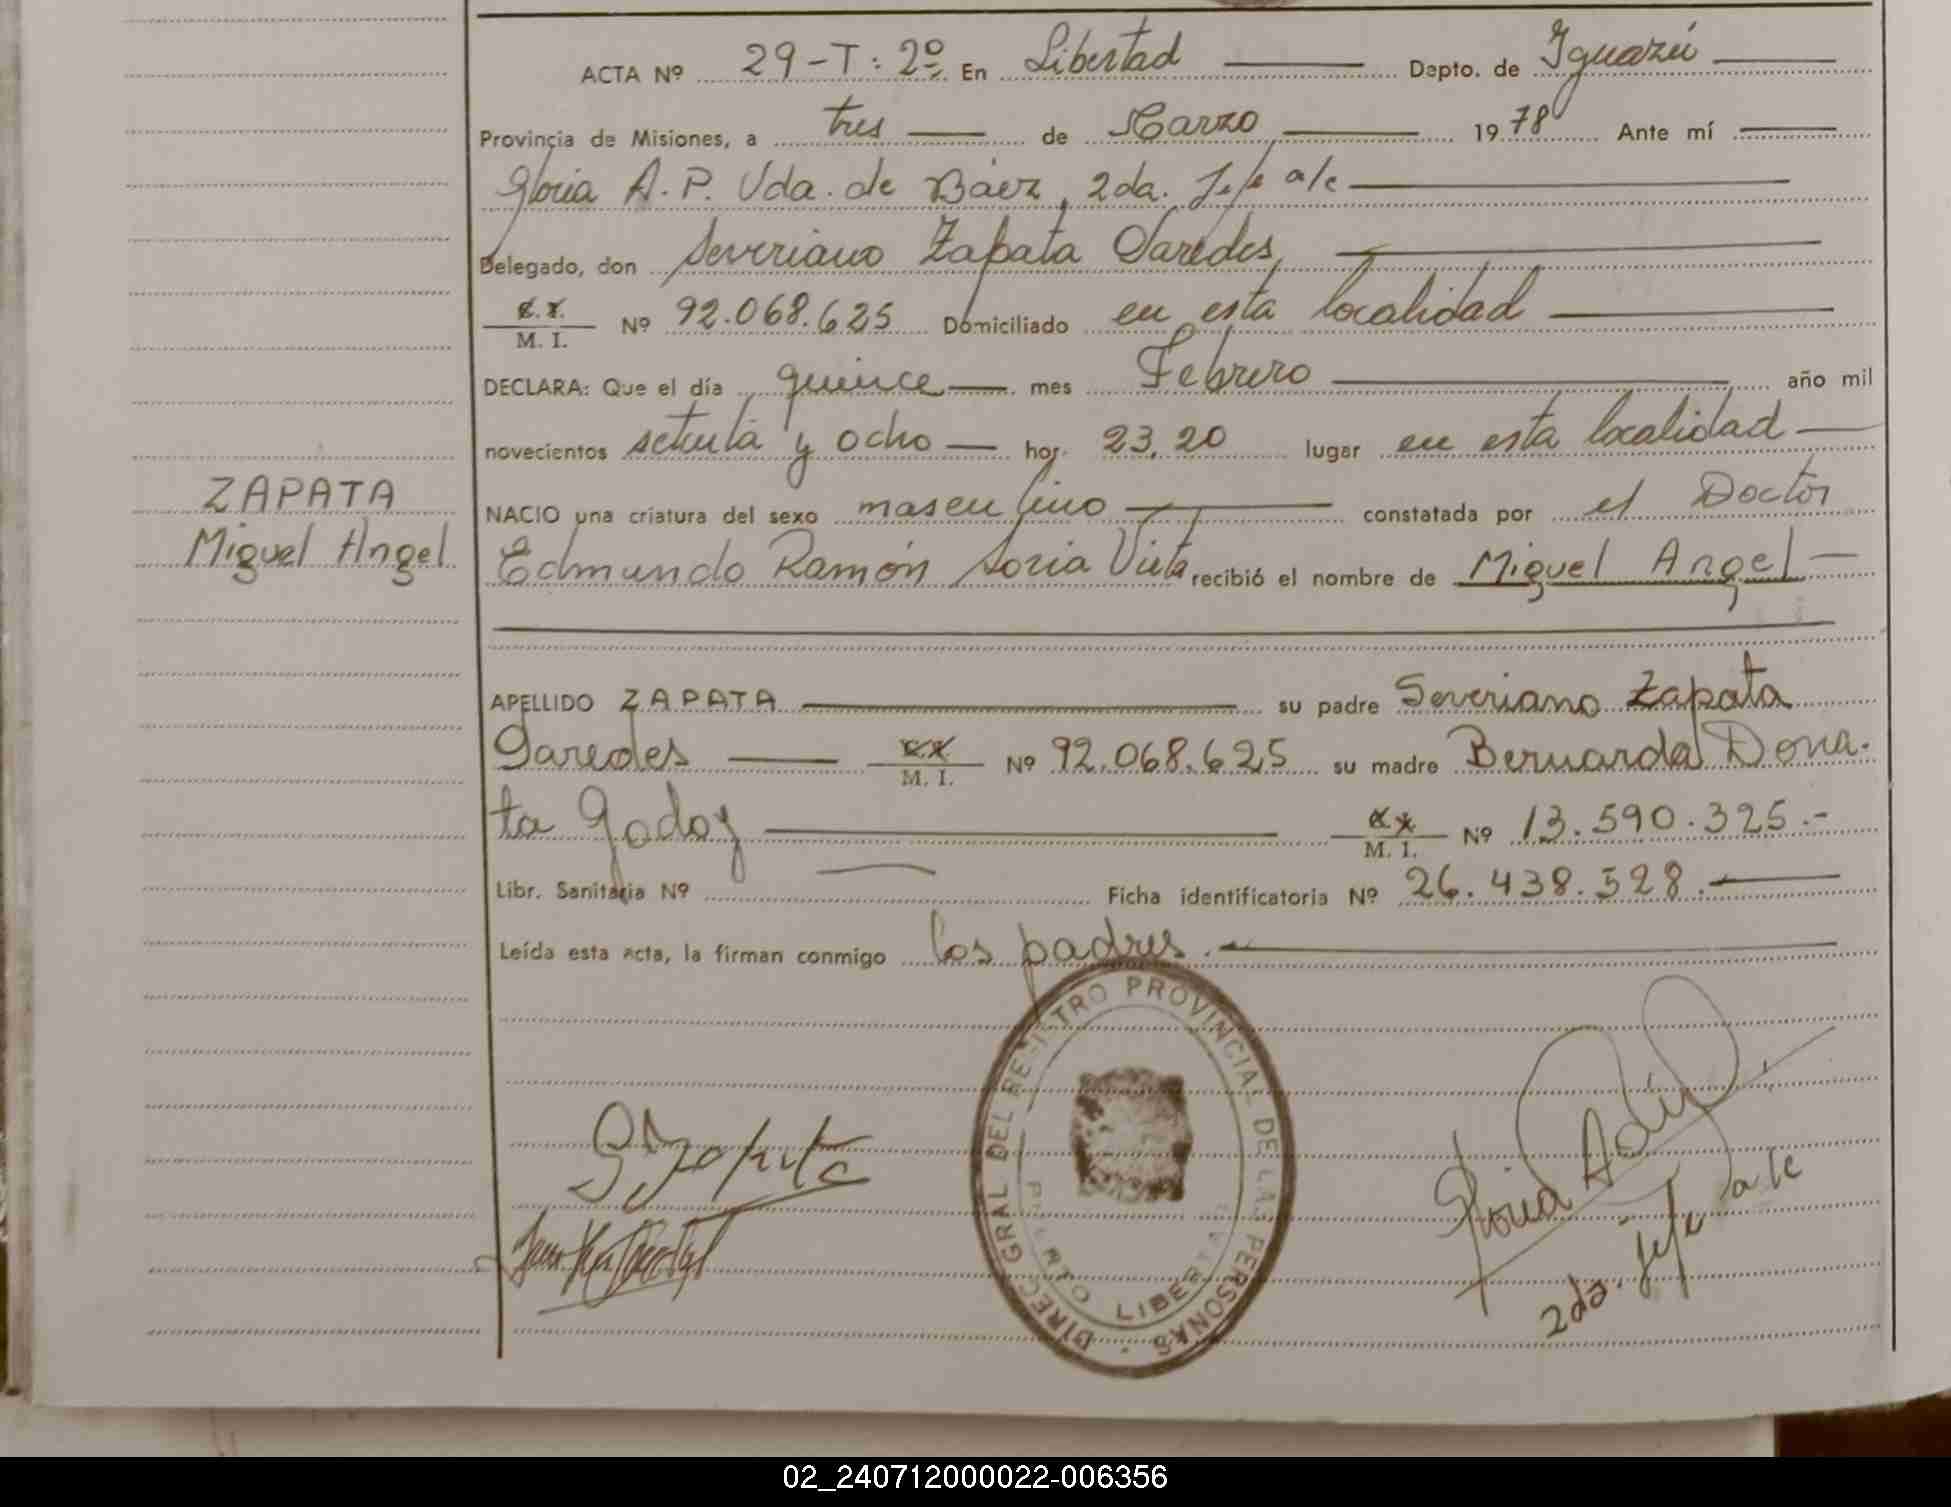 ACTA Nº 29-T: 2º En Libertad Dapto. de Iguazú
Provincia de Misiones, a tres de Marzo 1978 Ante mí
Gloria A. P. Vda. de Báez, 2da. Jefe a/c
Delegado, don Severiano Zapata Paredes,
C. I. M. I. Nº 92.068.625 Domiciliado en esta localidad
DECLARA: Que el día quince mes Febrero año mil
novecientos setenta y ocho hor. 23,20 lugar en esta localidad
ZAPATA
Miguel Angel
NACIO una criatura del sexo masculino constatada por el Doctor
Edmundo Ramón Soria Vieta recibió el nombre de Miguel Angel
APELLIDO ZAPATA su padre Severiano Zapata
Paredes M. I. Nº 92.068.625 su madre Bernarda Dona-
ta Godoy M. I. Nº 13.590.325.-
Libr. Sanitaria Nº Ficha identificatoria Nº 26.438.528.
Leída esta acta, la firman conmigo los padres.
DIREC. GRAL DEL REGISTRO PROVINCIAL DE LAS PERSONAS
PUERTO LIBERTAD
S Zapata
Gloria Adú
2da. Jefe a/c
02_240712000022-006356